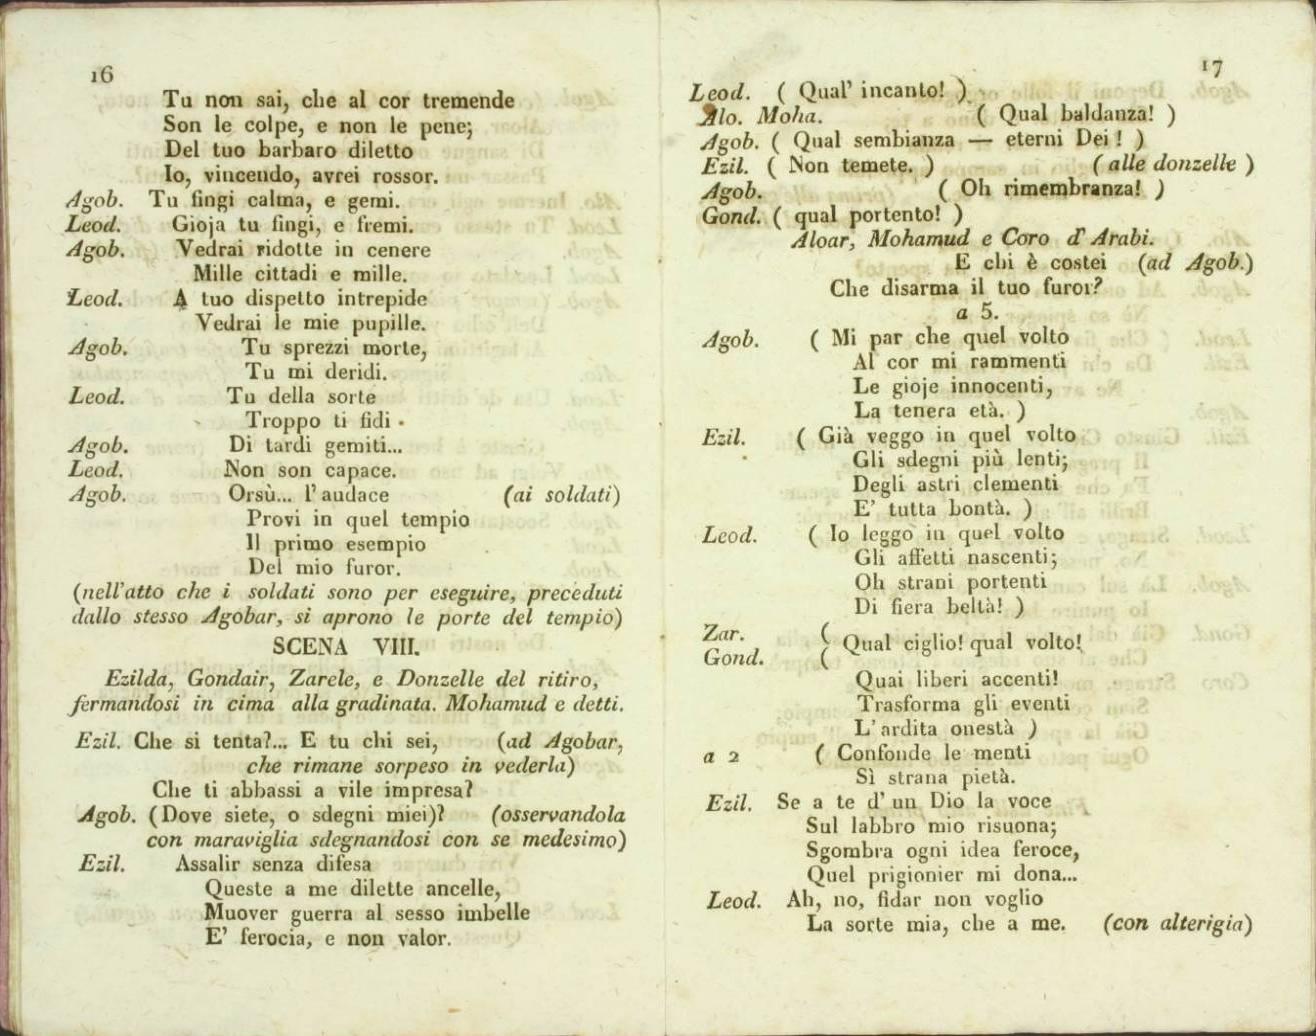 16
Tu non sai, che al cor tremende
Son le colpe, e non le pene;
Del tuo barbaro diletto
Io, vincendo, avrei rossor.
Agob. Tu fingi calma, e gemi.
Leod. Gioja tu fingi, e fremi.
Agob. Vedrai ridotte in cenere
Mille cittadi e mille.
Leod. A tuo dispetto intrepide
Vedrai le mie pupille.
Agob. Tu sprezzi morte,
Tu mi deridi.
Leod. Tu della sorte
Troppo ti fidi.
Agob. Di tardi gemiti...
Leod. Non son capace.
Agob. Orsù... l'audace (ai soldati)
Provi in quel tempio
Il primo esempio
Del mio furor.
(nell'atto che i soldati sono per eseguire, preceduti
dallo stesso Agobar, si aprono le porte del tempio)
SCENA VIII.
Ezilda, Gondair, Zarele, e Donzelle del ritiro,
fermandosi in cima alla gradinata. Mohamud e detti.
Ezil. Che si tenta?... E tu chi sei, (ad Agobar,
che rimane sorpeso in vederla)
Che ti abbassi a vile impresa?
Agob. (Dove siete, o sdegni miei)? (osservandola
con maraviglia sdegnandosi con se medesimo)
Ezil. Assalir senza difesa
Queste a me dilette ancelle,
Muover guerra al sesso imbelle
E' ferocia, e non valor.
17
Leod. ( Qual' incanto! )
Alo. Moha. ( Qual baldanza! )
Agob. ( Qual sembianza — eterni Dei! )
Ezil. ( Non temete. ) ( alle donzelle )
Agob. ( Oh rimembranza! )
Gond. ( qual portento! )
Aloar, Mohamud e Coro d'Arabi.
E chi è costei (ad Agob.)
Che disarma il tuo furor?
a 5.
Agob. ( Mi par che quel volto
Al cor mi rammenti
Le gioje innocenti,
La tenera età. )
Ezil. ( Già veggo in quel volto
Gli sdegni più lenti;
Degli astri clementi
E' tutta bontà. )
Leod. ( Io leggo in quel volto
Gli affetti nascenti;
Oh strani portenti
Di fiera beltà! )
Zar. (
Gond. ( Qual ciglio! qual volto!
Quai liberi accenti!
Trasforma gli eventi
L'ardita onestà )
a 2 ( Confonde le menti
Sì strana pietà.
Ezil. Se a te d'un Dio la voce
Sul labbro mio risuona;
Sgombra ogni idea feroce,
Quel prigionier mi dona...
Leod. Ah, no, fidar non voglio
La sorte mia, che a me. (con alterigia)